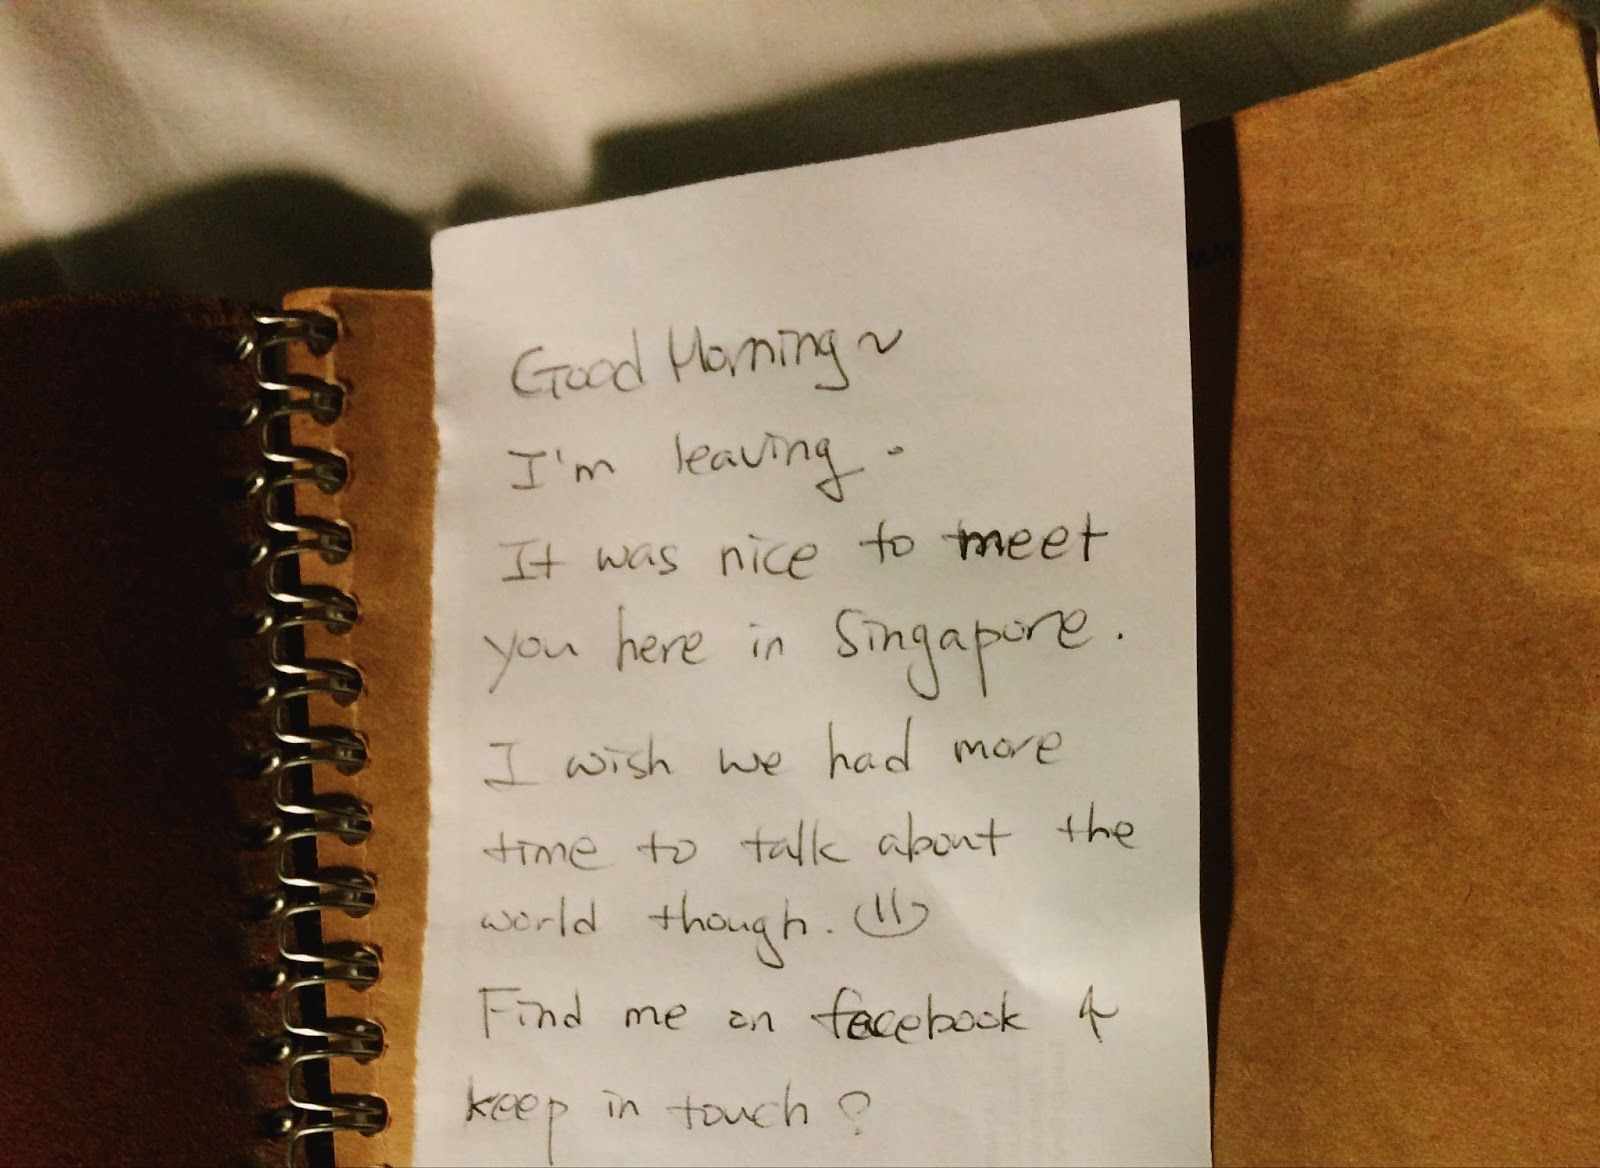 Good Morning~
I'm leaving.
It was nice to meet
you here in Singapore.
I wish we had more
time to talk about the
world though.
Find me on facebook &
keep in touch?